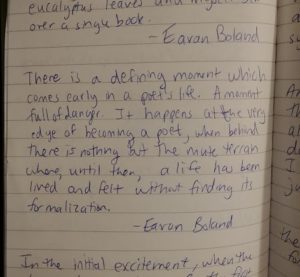 eucalyptus leaves and
over a single book.
- Eavan Boland
There is a defining moment which
comes early in a poet's life. A moment
full of danger. It happens at the very
edge of becoming a poet, when behind
there is nothing but the mute terrain
where, until then, a life has been
lived and felt without finding its
formalization.
- Eavan Boland
In the initial excitement, when the